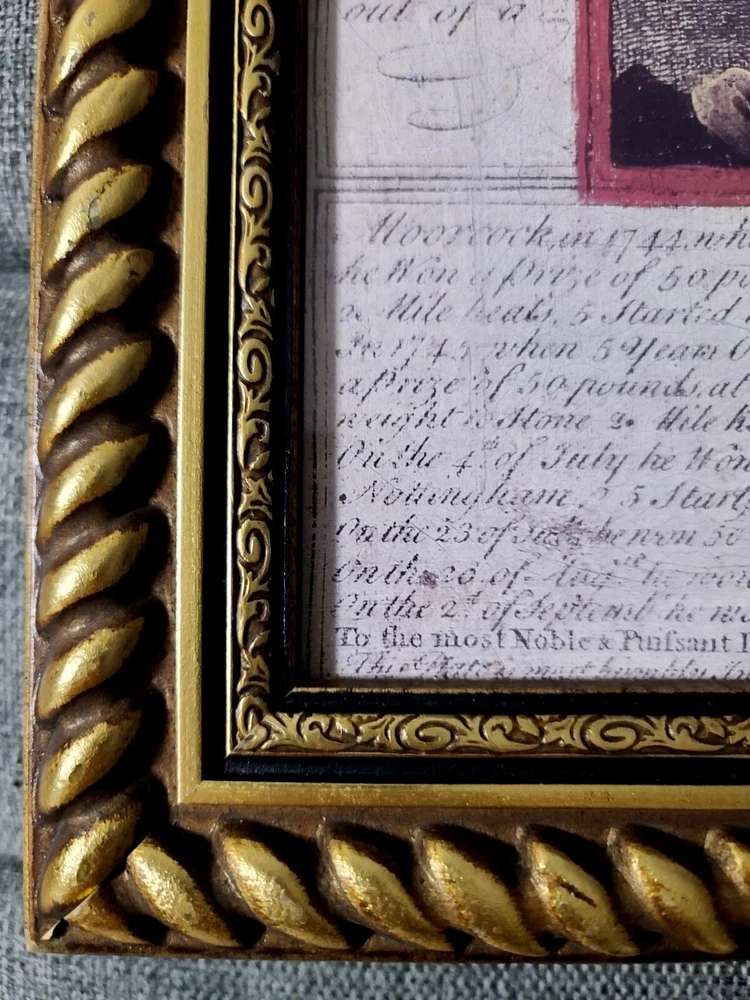 out of a
Moorcock, in 1744. wh
he Won a Prize of 50 po
2. Mile heats. 5 Started
In 1745 when 5 Years O
a Prize of 50 pounds. at
weight 10 Stone 2. Mile h
On the 4th of July he Won
Nottingham. 5 Start
On the 23 of he won 50
On the 20 of Augst he won
On the 2d of Septemb he wo
To the most Noble & Puiſsant
This Plate is most humbly